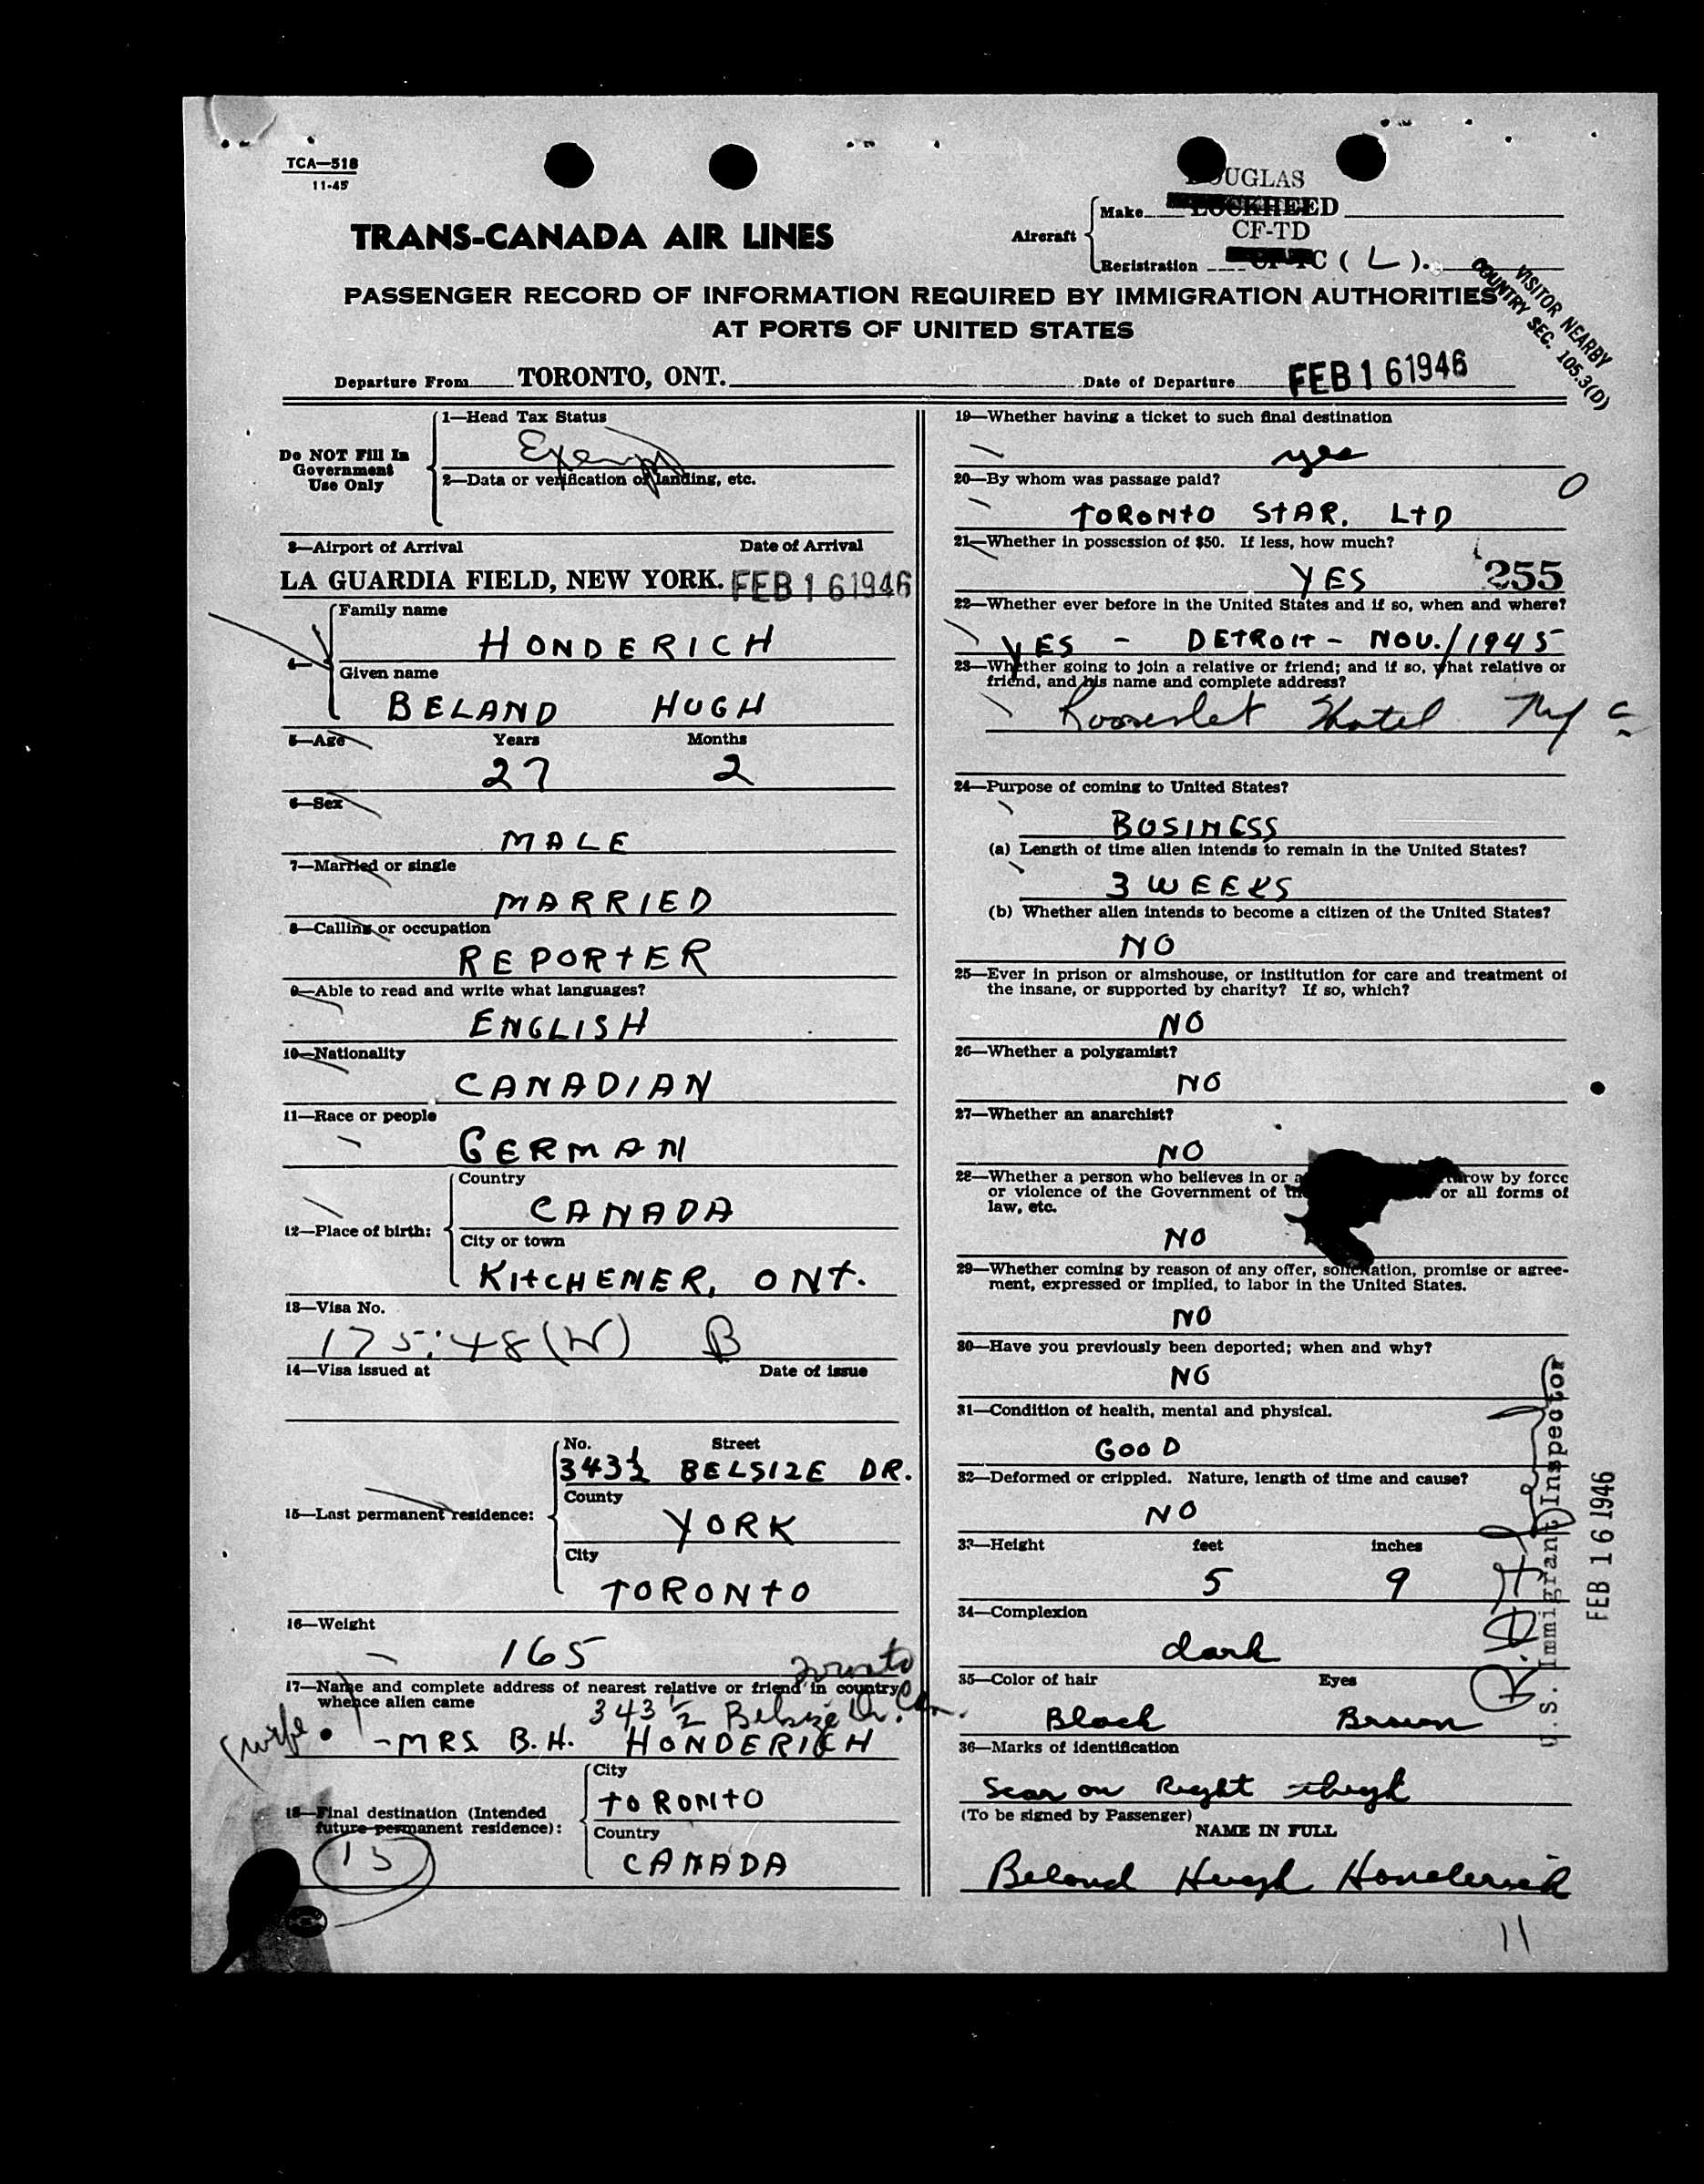 TCA—518
11-45
DOUGLAS
Make LOCKHEED
TRANS-CANADA AIR LINES
Aircraft
CF-TD
Registration CF-TC ( L ).
PASSENGER RECORD OF INFORMATION REQUIRED BY IMMIGRATION AUTHORITIES
AT PORTS OF UNITED STATES
VISITOR NEARBY
COUNTRY SEC. 105.3(D)
Departure From TORONTO, ONT. Date of Departure FEB 16 1946
Do NOT Fill In
Government
Use Only
1—Head Tax Status
Exempt
2—Data or verification of landing, etc.
3—Airport of Arrival Date of Arrival
LA GUARDIA FIELD, NEW YORK. FEB 16 1946
4—
Family name
HONDERICH
Given name
BELAND HUGH
5—Age Years Months
27 2
6—Sex
MALE
7—Married or single
MARRIED
8—Calling or occupation
REPORTER
9—Able to read and write what languages?
ENGLISH
10—Nationality
CANADIAN
11—Race or people
GERMAN
12—Place of birth:
Country
CANADA
City or town
KITCHENER, ONT.
13—Visa No.
175:48 (W) B
14—Visa issued at Date of issue
15—Last permanent residence:
No. Street
343½ BELSIZE DR.
County
YORK
City
TORONTO
16—Weight
165
Toronto
17—Name and complete address of nearest relative or friend in country
whence alien came
343 ½ Belsize Dr. Can.
(wife - MRS B. H. HONDERICH
18—Final destination (Intended
future permanent residence):
City
TORONTO
Country
CANADA
13
19—Whether having a ticket to such final destination
yes
20—By whom was passage paid?
0
TORONTO STAR. LTD
21—Whether in possession of $50. If less, how much?
YES 255
22—Whether ever before in the United States and if so, when and where?
YES - DETROIT - NOV./1945
23—Whether going to join a relative or friend; and if so, what relative or
friend, and his name and complete address?
Roosevelt Hotel NYC
24—Purpose of coming to United States?
BUSINESS
(a) Length of time alien intends to remain in the United States?
3 WEEKS
(b) Whether alien intends to become a citizen of the United States?
NO
25—Ever in prison or almshouse, or institution for care and treatment of
the insane, or supported by charity? If so, which?
NO
26—Whether a polygamist?
NO
27—Whether an anarchist?
NO
28—Whether a person who believes in or a throw by force
or violence of the Government of the or all forms of
law, etc.
NO
29—Whether coming by reason of any offer, solicitation, promise or agree-
ment, expressed or implied, to labor in the United States.
NO
30—Have you previously been deported; when and why?
NO
31—Condition of health, mental and physical.
GOOD
32—Deformed or crippled. Nature, length of time and cause?
NO
33—Height feet inches
5 9
34—Complexion
dark
35—Color of hair Eyes
Black Brown
36—Marks of identification
Scar on Right thigh
(To be signed by Passenger)
NAME IN FULL
Beland Hugh Honderich
U.S. Immigrant Inspector
FEB 16 1946
11